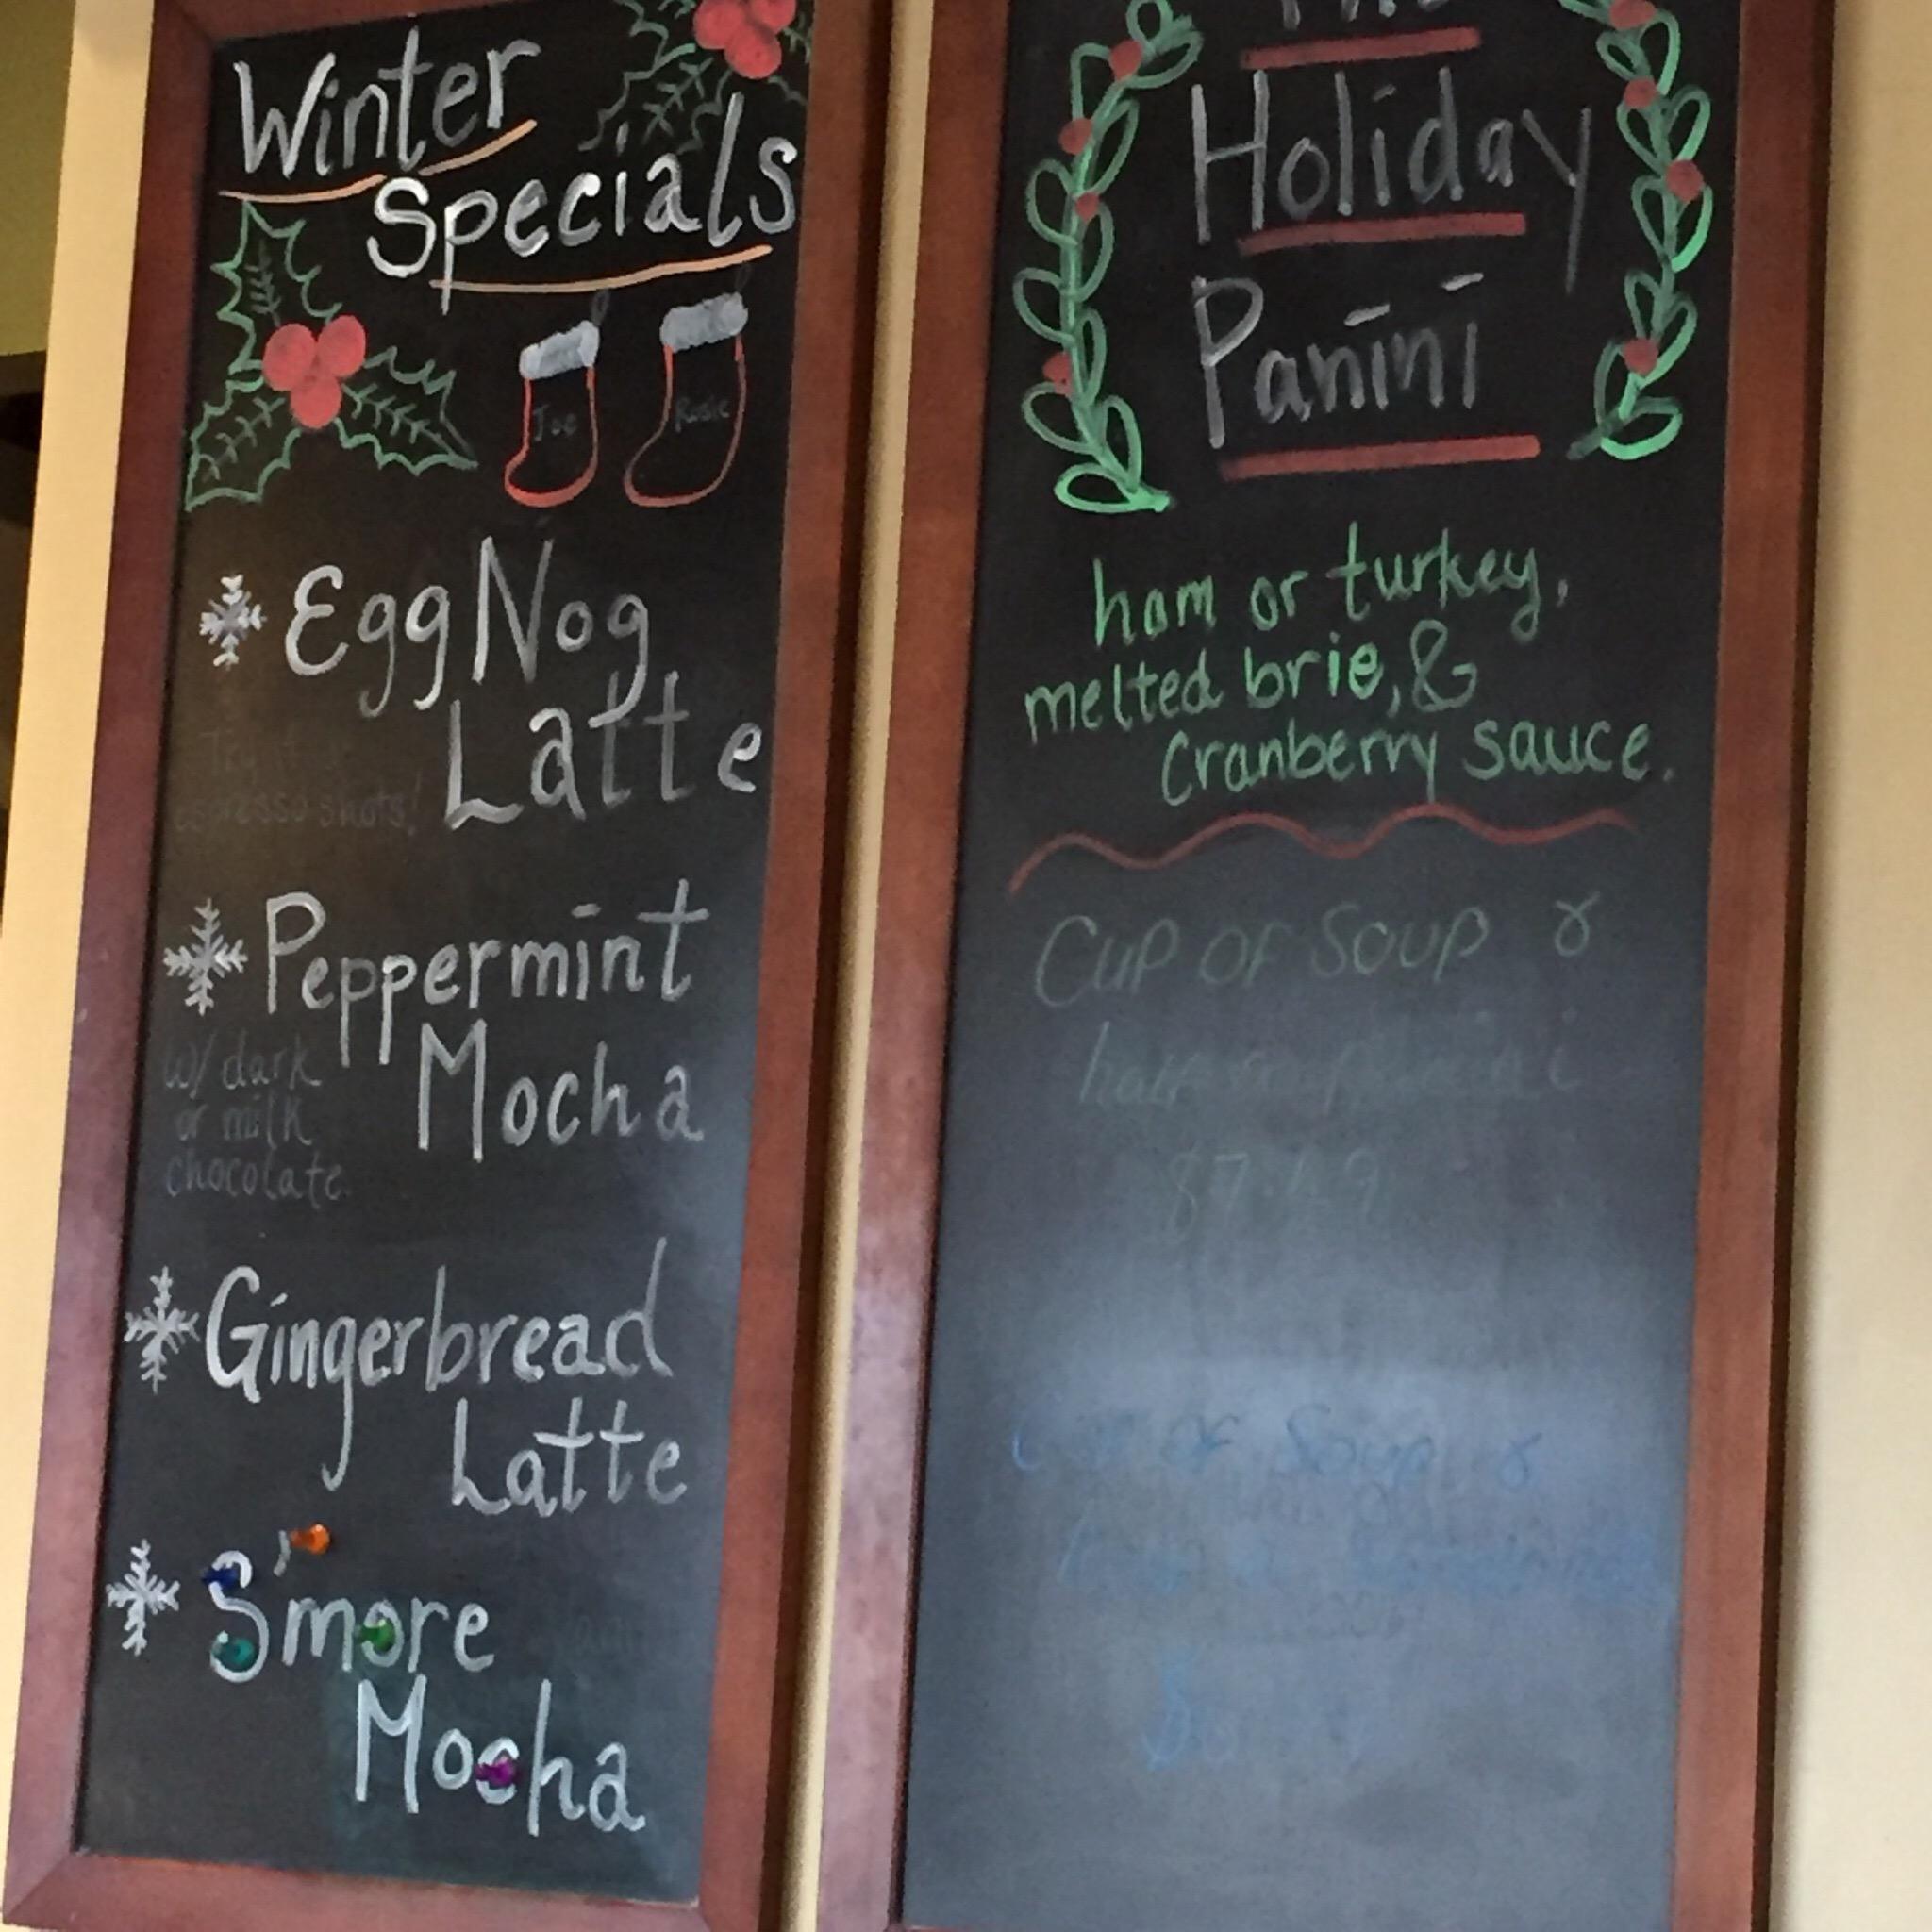 Winter
Specials
Joe
Rosie
Egg Nog
Latte
Try it
espresso shots!
Peppermint
Mocha
w/ dark
or milk
chocolate.
Gingerbread
Latte
S'more
Mocha
The
Holiday
Panini
ham or turkey,
melted brie, &
Cranberry sauce.
Cup of Soup &
half panini
of Soup &